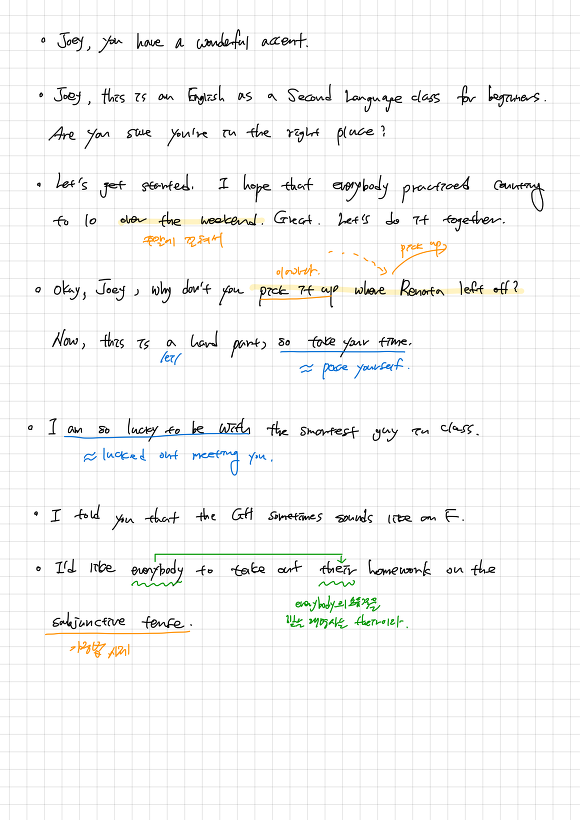 • Joey, you have a wonderful accent.
• Joey, this is an English as a Second Language class for beginners.
Are you sure you're in the right place?
• Let's get started. I hope that everybody practiced counting
to 10 over the weekend. Great. Let's do it together.
주말에 걸쳐서
pick up
이어하다.
• Okay, Joey, why don't you pick it up where Renata left off?
Now, this is a hard part, so take your time.
/eɪ/
≈ pace yourself.
• I am so lucky to be with the smartest guy in class.
≈ lucked out meeting you.
• I told you that the GH sometimes sounds like an F.
• I'd like everybody to take out their homework on the
everybody의 소유격을
subjunctive tense.
받는 대명사는 their이다.
가정법 시제